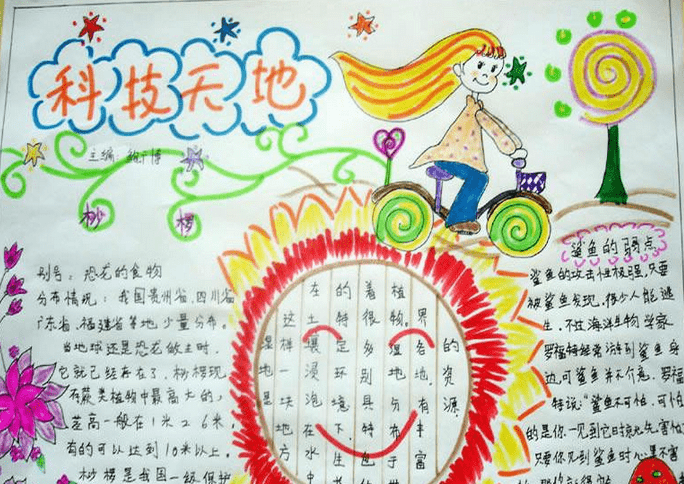 科技天地
主编：
桫椤
别号：恐龙的食物
分布情况：我国贵州省、四川省
广东省、福建省等地少量分布。
当地球还是恐龙做主时，
它就已经存在了，桫椤现
存蕨类植物中最高大的，
茎高一般在1米~6米，
有的可以达到10米以上。
桫椤是我国一级保护
湿地是
这样一块地方
在土壤浸泡在水中
的特定环境下生
着很多别具特色
植物。湿地分布于
界各地，有丰富
的资源
鲨鱼的弱点
鲨鱼的攻击性极强，只要
被鲨鱼发现，很少人能逃
生，不过海洋生物学家
罗福特经常游到鲨鱼身
边，可鲨鱼并不介意，罗福
特说：“鲨鱼不可怕，可怕
的是你一见到它时就先害怕
只要你见到鲨鱼时心里不害